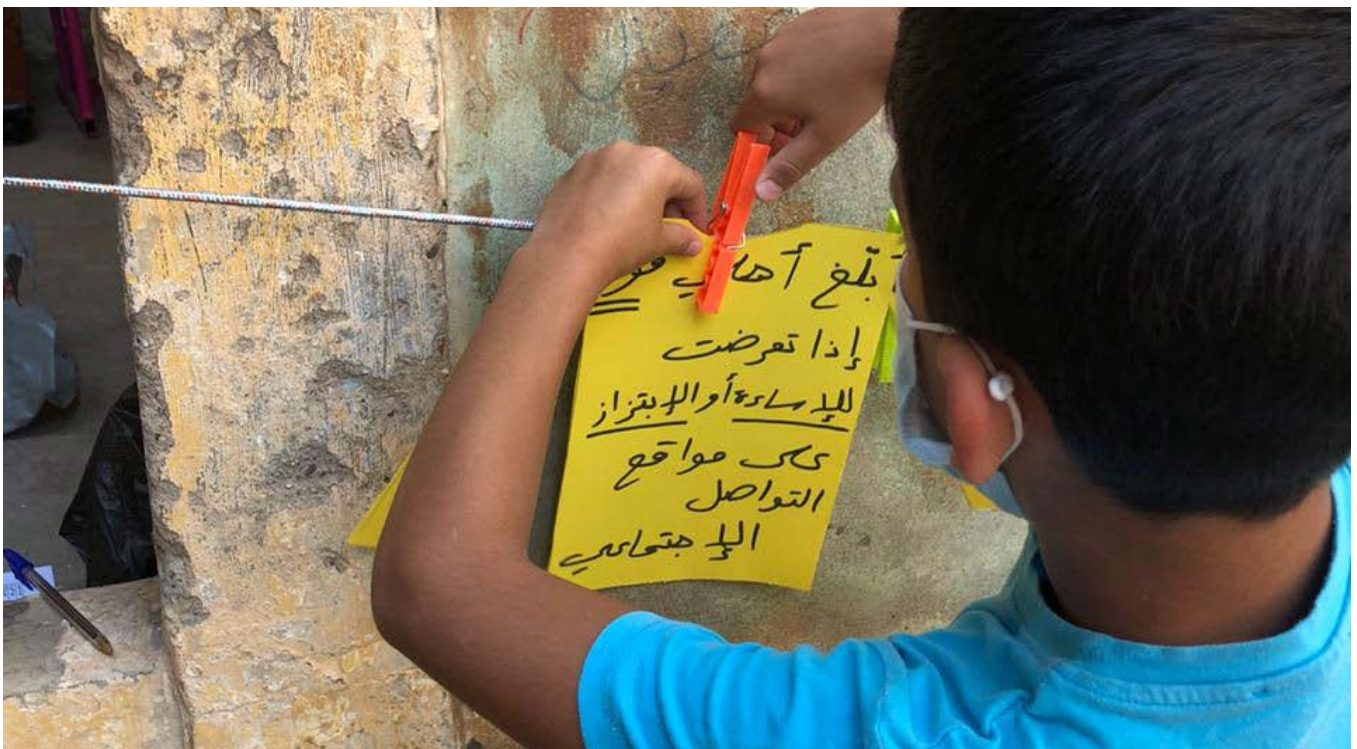 بلّغ أهلي
إذا تعرضت
للإساءة أو الإبتزاز
على مواقع
التواصل
الإجتماعي